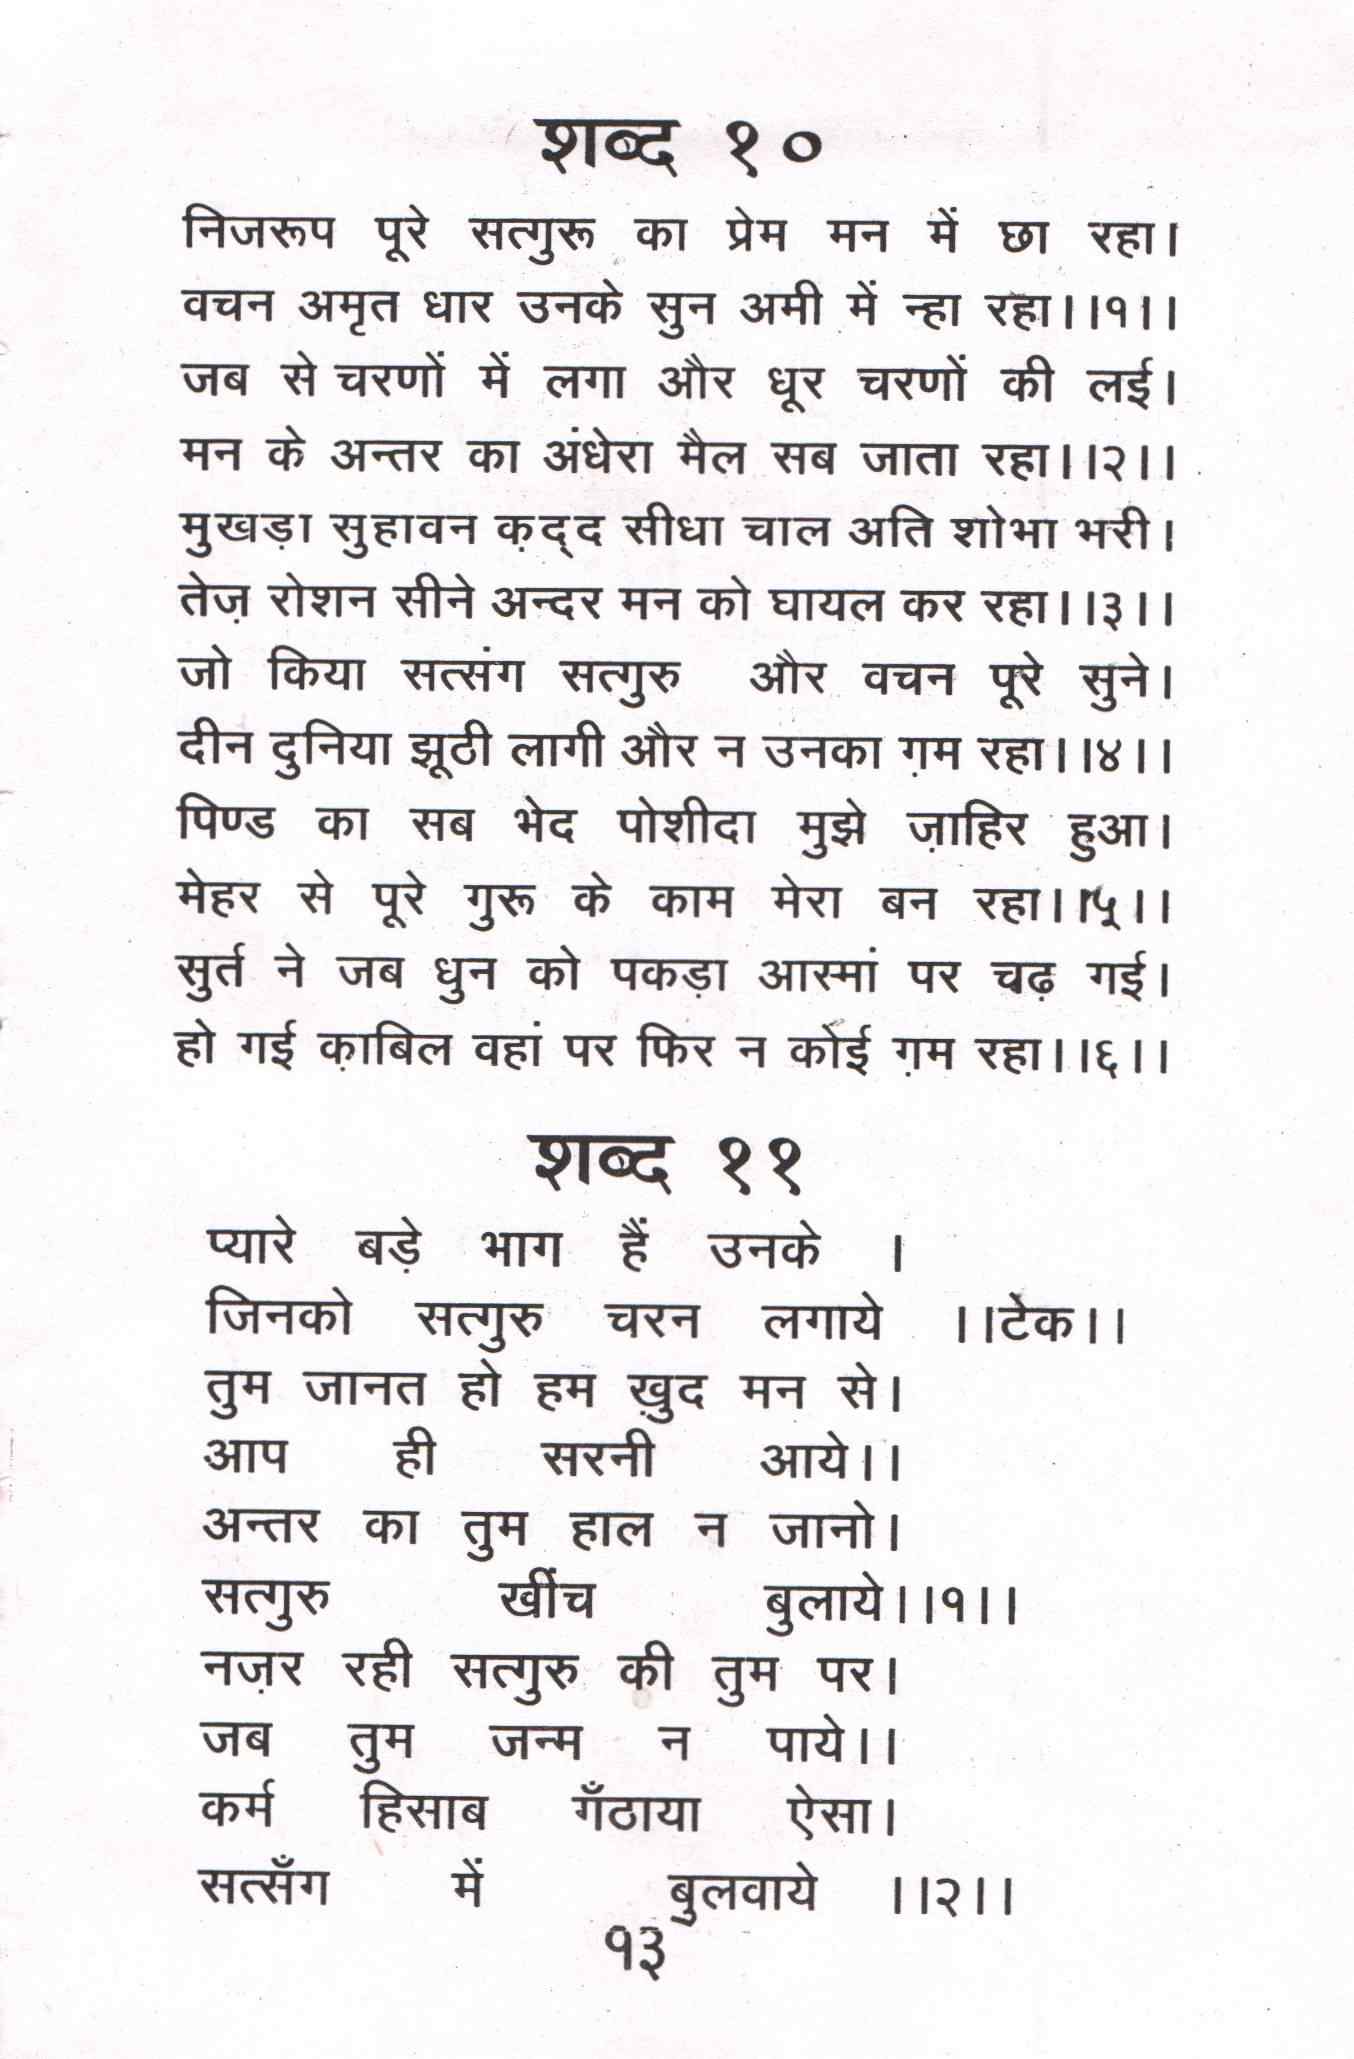 शब्द १०
निजरूप पूरे सत्गुरू का प्रेम मन में छा रहा।
वचन अमृत धार उनके सुन अमी में न्हा रहा।।१।।
जब से चरणों में लगा और धूर चरणों की लई।
मन के अन्तर का अंधेरा मैल सब जाता रहा।।२।।
मुखड़ा सुहावन क़द्द सीधा चाल अति शोभा भरी।
तेज़ रोशन सीने अन्दर मन को घायल कर रहा।।३।।
जो किया सत्संग सत्गुरु और वचन पूरे सुने।
दीन दुनिया झूठी लागी और न उनका ग़म रहा।।४।।
पिण्ड का सब भेद पोशीदा मुझे ज़ाहिर हुआ।
मेहर से पूरे गुरू के काम मेरा बन रहा।।५।।
सुर्त ने जब धुन को पकड़ा आस्मां पर चढ़ गई।
हो गई क़ाबिल वहां पर फिर न कोई ग़म रहा।।६।।
शब्द ११
प्यारे बड़े भाग हैं उनके ।
जिनको सत्गुरु चरन लगाये ।।टेक।।
तुम जानत हो हम ख़ुद मन से।
आप ही सरनी आये।।
अन्तर का तुम हाल न जानो।
सत्गुरु खींच बुलाये।।१।।
नज़र रही सत्गुरु की तुम पर।
जब तुम जन्म न पाये।।
कर्म हिसाब गँठाया ऐसा।
सत्सँग में बुलवाये ।।२।।
१३